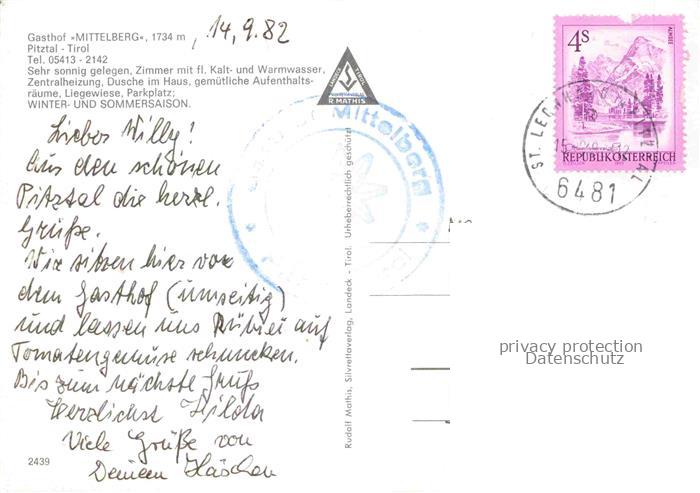 Gasthof »MITTELBERG«, 1734 m
Pitztal - Tirol
Tel. 05413 - 2142
Sehr sonnig gelegen, Zimmer mit fl. Kalt- und Warmwasser,
Zentralheizung, Dusche im Haus, gemütliche Aufenthalts-
räume, Liegewiese, Parkplatz;
WINTER- UND SOMMERSAISON.
14.9.82
Liebes Willy!
Aus den schönen
Pitztal die herzl.
Grüße.
Wir sitzen hier vor
dem Gasthof (umseitig)
und lassen uns auf
Tomatengemüse schmecken.
Bis zum nächste Gruß
Herzlichst Hilda
Viele Grüße von
Deinem Häschen
2439
R. MATHIS
Mittelberg
Rudolf Mathis, Silvrettaverlag, Landeck - Tirol. Urheberrechtlich geschützt
4S
ALMSEE
REPUBLIK ÖSTERREICH
ST. LEONHARD
6481
privacy protection
Datenschutz